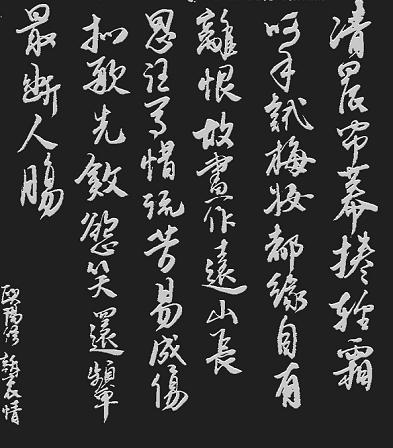 清晨帘幕捲輕霜
呵手試梅妝都緣自有
離恨故畫作遠山長
思往事惜流芳易成傷
拟歌先斂慾笑還顰
最斷人腸
歐陽修 訴衷情